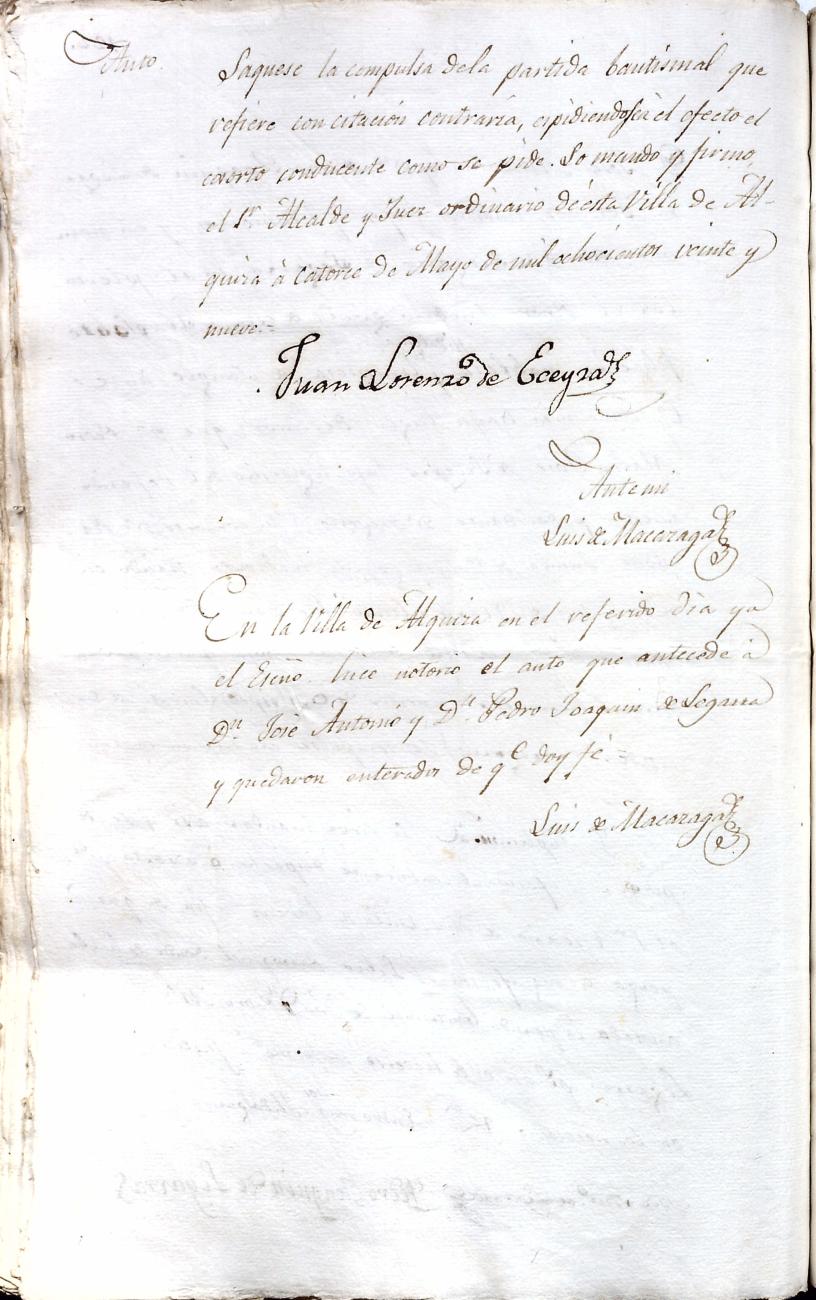 Auto.
Saquese la compulsa dela partida bautismal que
refiere con citación contraria, espidiendose à el efecto el
exorto conducente como se pide. Lo mando y firmo,
el Sr. Alcalde y Juez ordinario dé ésta Villa de Al-
quiza à catorce de Mayo de mil ochocientos veinte y
nueve.=
Juan Lorenzo de Eceyza
Ante mi
Luis de Macazaga
En la Villa de Alquiza en el referido dia yo
el Esc̃no. hice notorio el auto que antecede à
Dn. José Antonio y Dn. Pedro Joaquin de Legarra
y quedaron enterados de qe. doy fé.=
Luis de Macazaga